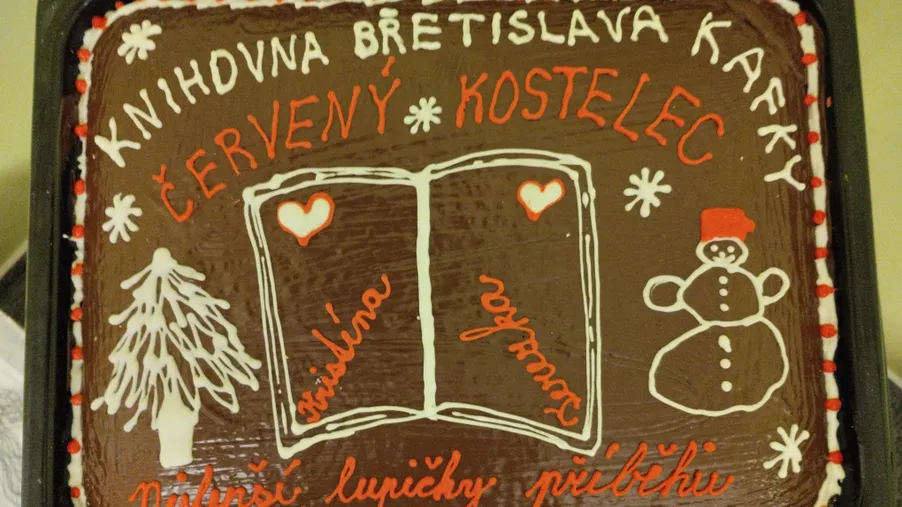 KNIHOVNA BŘETISLAVA KAFKY
ČERVENÝ KOSTELEC
Kristéna
Terezka
Nejlepší lupičky příběhu